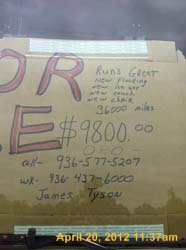 OR
E
Runs Great
New flooring
new couch
new chair
36000 miles
$9800.00
OBO
cell- 936-577-5207
wk- 936-437-6000
James Tyson
April 20, 2012 11:37am